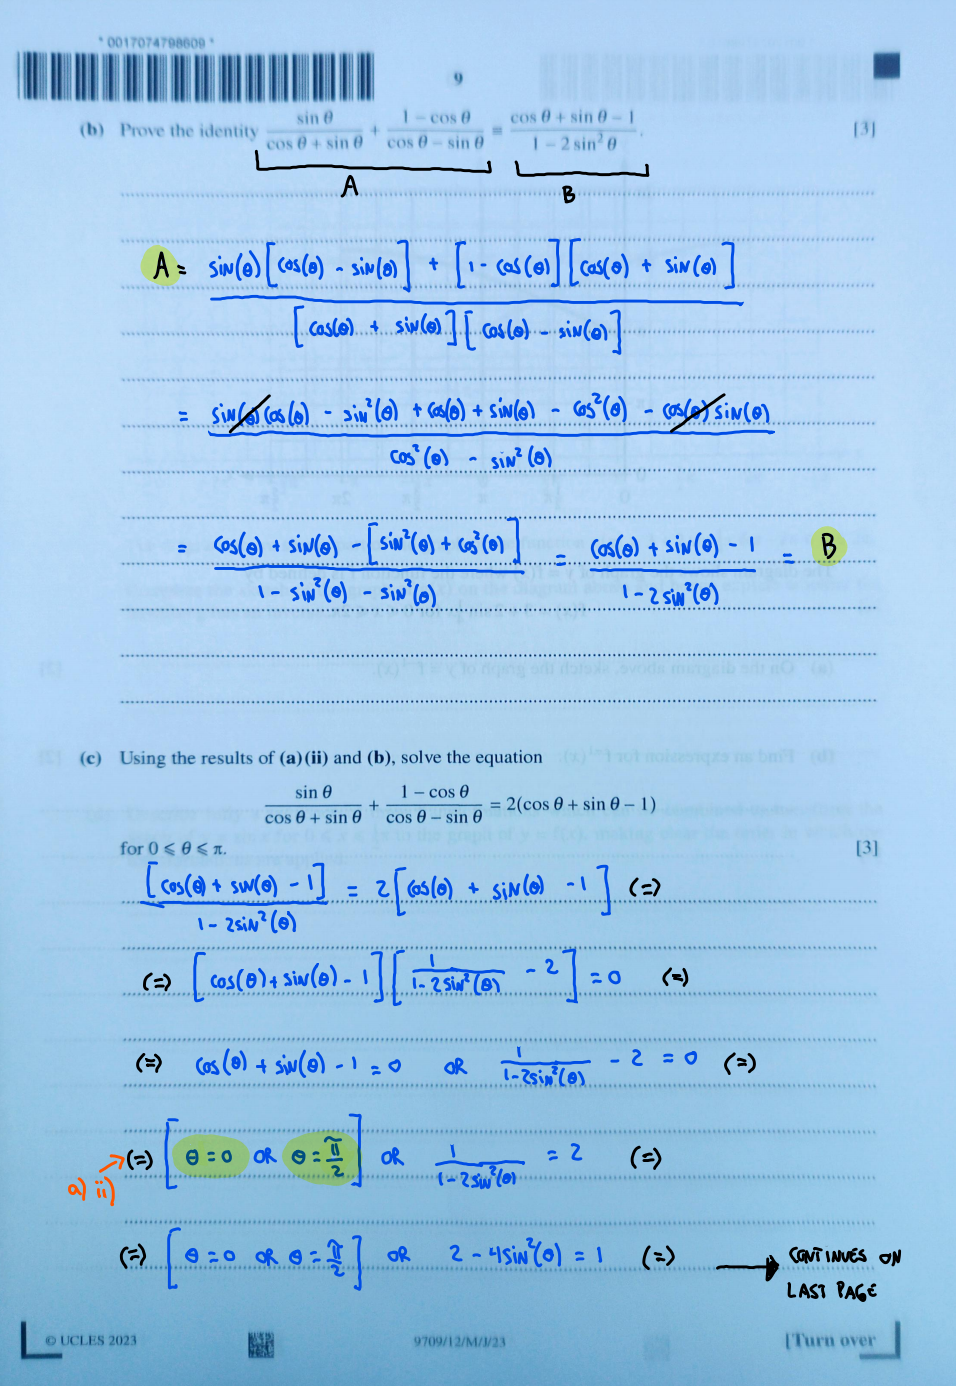 * 0017074798609 *
9
(b) Prove the identity sin θ / (cos θ + sin θ) + (1 − cos θ) / (cos θ − sin θ) ≡ (cos θ + sin θ − 1) / (1 − 2 sin² θ). [3]
A B
A = (sin(θ)[cos(θ) - sin(θ)] + [1 - cos(θ)][cos(θ) + sin(θ)]) / ([cos(θ) + sin(θ)][cos(θ) - sin(θ)])
= (sin(θ)cos(θ) - sin²(θ) + cos(θ) + sin(θ) - cos²(θ) - cos(θ)sin(θ)) / (cos²(θ) - sin²(θ))
= (cos(θ) + sin(θ) - [sin²(θ) + cos²(θ)]) / (1 - sin²(θ) - sin²(θ)) = (cos(θ) + sin(θ) - 1) / (1 - 2sin²(θ)) = B
(c) Using the results of (a)(ii) and (b), solve the equation
sin θ / (cos θ + sin θ) + (1 − cos θ) / (cos θ − sin θ) = 2(cos θ + sin θ − 1)
for 0 ⩽ θ ⩽ π. [3]
[cos(θ) + sin(θ) - 1] / (1 - 2sin²(θ)) = 2[cos(θ) + sin(θ) - 1] (=)
(=) [cos(θ) + sin(θ) - 1][1 / (1 - 2sin²(θ)) - 2] = 0 (=)
(=) cos(θ) + sin(θ) - 1 = 0 OR 1 / (1 - 2sin²(θ)) - 2 = 0 (=)
(=) [θ = 0 OR θ = π/2] OR 1 / (1 - 2sin²(θ)) = 2 (=)
a) ii)
(=) [θ = 0 OR θ = π/2] OR 2 - 4sin²(θ) = 1 (=) → CONTINUES ON
LAST PAGE
© UCLES 2023 9709/12/M/J/23 [Turn over